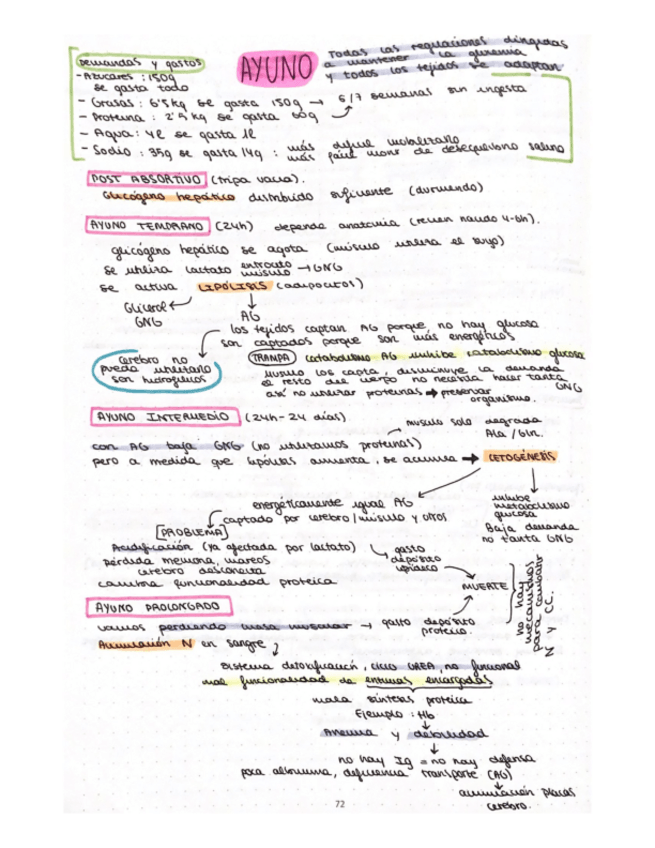 Demandas y gastos
AYUNO
Todas las regulaciones dirigidas
a mantener la glucemia
y todos los tejidos se adaptan
- Azúcares : 150g
se gasta todo
- Grasas : 6'5kg se gasta 150g → 6/7 semanas sin ingesta
- Proteína : 2'5 kg se gasta 60g
- Agua : 4l se gasta 1l
- Sodio : 35g se gasta 14g : más difícil movilizarlo
más fácil morir de desequilibrio salino
POST ABSORTIVO (tripa vacía).
Glucógeno hepático distribuido suficiente (durmiendo)
AYUNO TEMPRANO (24h) depende anatomía (recién nacido 4-6h).
glucógeno hepático se agota (músculo utiliza el suyo)
se utiliza lactato eritrocito músculo → GNG
se activa LIPÓLISIS (adipocitos)
Glicerol
GNG
AG
los tejidos captan AG porque, no hay glucosa
son captados porque son más energéticos
cerebro no
puede utilizarlo
son hidrófugos
TRAMPA catabolismo AG inhibe catabolismo glucosa
músculo los capta, disminuye la demanda
el resto del cuerpo no necesita hacer tanta GNG
así no utilizar proteínas → preservar
organismo.
AYUNO INTERMEDIO (24h-24 días)
músculo solo degrada
Ala / Gln.
con AG baja GNG (no utilizamos proteínas)
pero a medida que lipólisis aumenta, se acumula → CETOGÉNESIS
energéticamente igual AG
captado por cerebro/músculo y otros
inhibe
metabolismo
glucosa
Baja demanda
no tanta GNG
[PROBLEMA]
Acidificación (ya afectada por lactato)
pérdida memoria, mareos
cerebro desconecta
cambia funcionalidad proteica
gasto
depósito
lipídico
MUERTE
no hay
mecanismos
para combatir
N y CC.
AYUNO PROLONGADO
vamos perdiendo masa muscular → gasto depósito
proteína.
Acumulación N en sangre
sistema detoxificación, ciclo UREA, no funcional
mal funcionalidad de enzimas encargadas
mala síntesis proteica
Ejemplo : Hb
Anemia y debilidad
no hay Ig = no hay defensa
poca albúmina, deficiencia transporte (AG)
acumulación placas
cerebro.
72